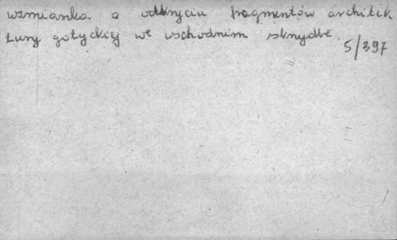 wzmianka o odkryciu fragmentów architek
tury gotyckiej we wschodnim skrzydle.
5/397